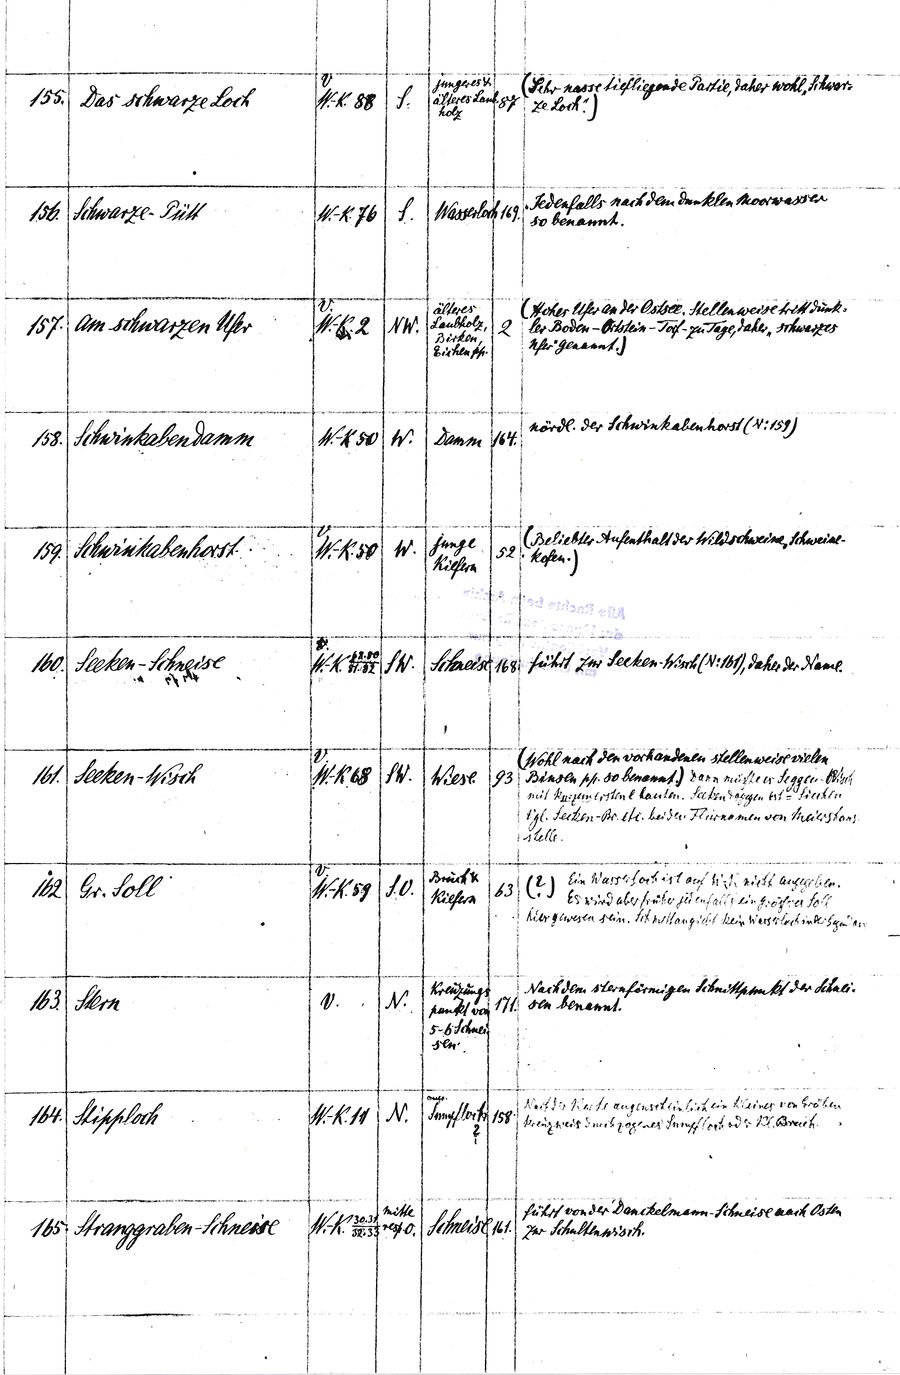 155. Das schwarze Loch V. W.-K. 88 S. jüngeres & älteres Laubholz 87 (Sehr nasse tiefliegende Partie, daher wohl „Schwar-
ze Loch".)
156. Schwarze-Pütt W.-K. 76 S. Wasserloch 169. Jedenfalls nach dem dunklen Moorwasser
so benannt.
157. Am schwarzen Ufer V. W.-K. 2 NW. älteres Laubholz, Birken, Eichen pp. 2 (Hohes Ufer an der Ostsee. Stellenweise tritt dunk-
ler Boden – Ortstein – Torf – zu Tage, daher „schwarzes
Ufer" genannt.)
158. Schwinkabendamm W.-K 50 W. Damm 164. nördl. der Schwinkabenhorst (N: 159)
159. Schwinkabenhorst V. W.-K. 50 W. junge Kiefern 52 (Beliebter Aufenthalt der Wildschweine, Schweine-
kofen.)
160. Seeken-Schneise V. W.-K SW. Schneise 168. führt zur Seeken-Wisch (N: 161), daher der Name.
161. Seeken-Wisch V. W.-K 68 SW. Wiese 93 (Wohl nach den vorhandenen stellenweise vielen
Binsen pp. so benannt.) Dann müßte es Seggen-Wisch
mit kurzem ersten e lauten.
Vgl. Seeken-Br. etc. bei den Flurnamen von Meiershans
stelle.
162 Gr. Soll V. W.-K 59 S.O. Bruch & Kiefern 63 (?) Ein Wasserloch ist auf nicht angegeben.
Es wird aber früher jedenfalls ein größeres Soll
hier gewesen sein.
163. Stern V. N. Kreuzungs punkt von 5-6 Schnei- sen. 171. Nach dem sternförmigen Schnittpunkt der Schnei-
sen benannt.
164. Stipploch W.-K. 11 N. Sumpfloch ? 158. Nach der Karte augenscheinlich ein kleines von Gräben
kreuzweis durchzogenes Sumpfloch oder Kl. Bruch.
165. Stranggraben-Schneise W.-K. 30.31 32.33 mitte O. Schneise 161. führt von der Danckelmann-Schneise nach Osten
zur Schultenwisch.